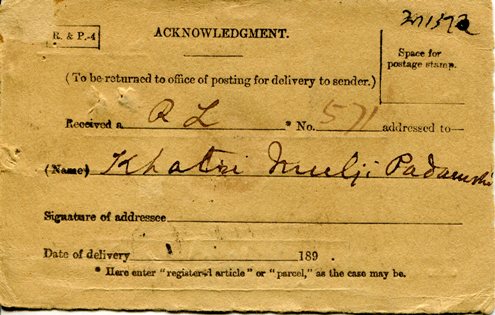 R. & P.-4
ACKNOWLEDGMENT.
Space for
postage stamp.
(To be returned to office of posting for delivery to sender.)
Received a R L * No. 571 addressed to—
(Name) Khatri Mulji Padamshi
Signature of addressee
Date of delivery 189 .
* Here enter "registered article" or "parcel," as the case may be.